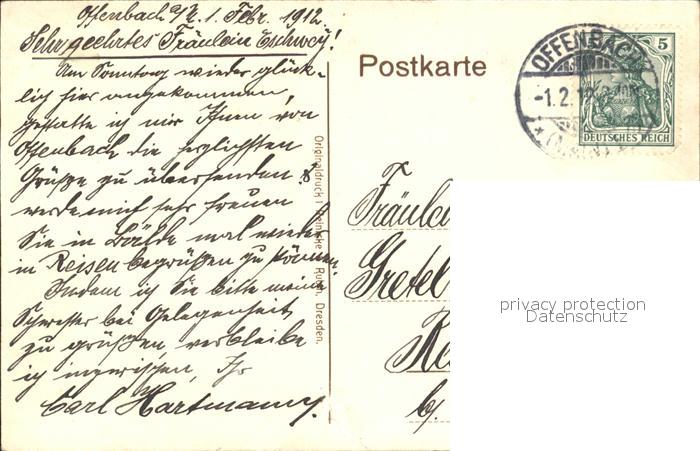 Offenbach a/M. 1. Febr. 1912.
Sehr geehrtes Fräulein Eschwey!
Am Sonntag wieder glück-
lich hier angekommen,
gestatte ich mir Ihnen von
Offenbach die herzlichsten
Grüße zu übersenden. Es
werde mich sehr freuen
Sie in Bälde mal wieder
in Reisen begrüßen zu können.
Indem ich Sie bitte meine
Schwester bei Gelegenheit
zu grüßen, verbleibe
ich inzwischen, Ihr
Carl Hartmann.
Originaldruck Reinicke Rubin, Dresden.
Postkarte
OFFENBACH
-1.2.12
(MAIN)
5
DEUTSCHES REICH
Fräulein
Gretel
b/.
privacy protection
Datenschutz